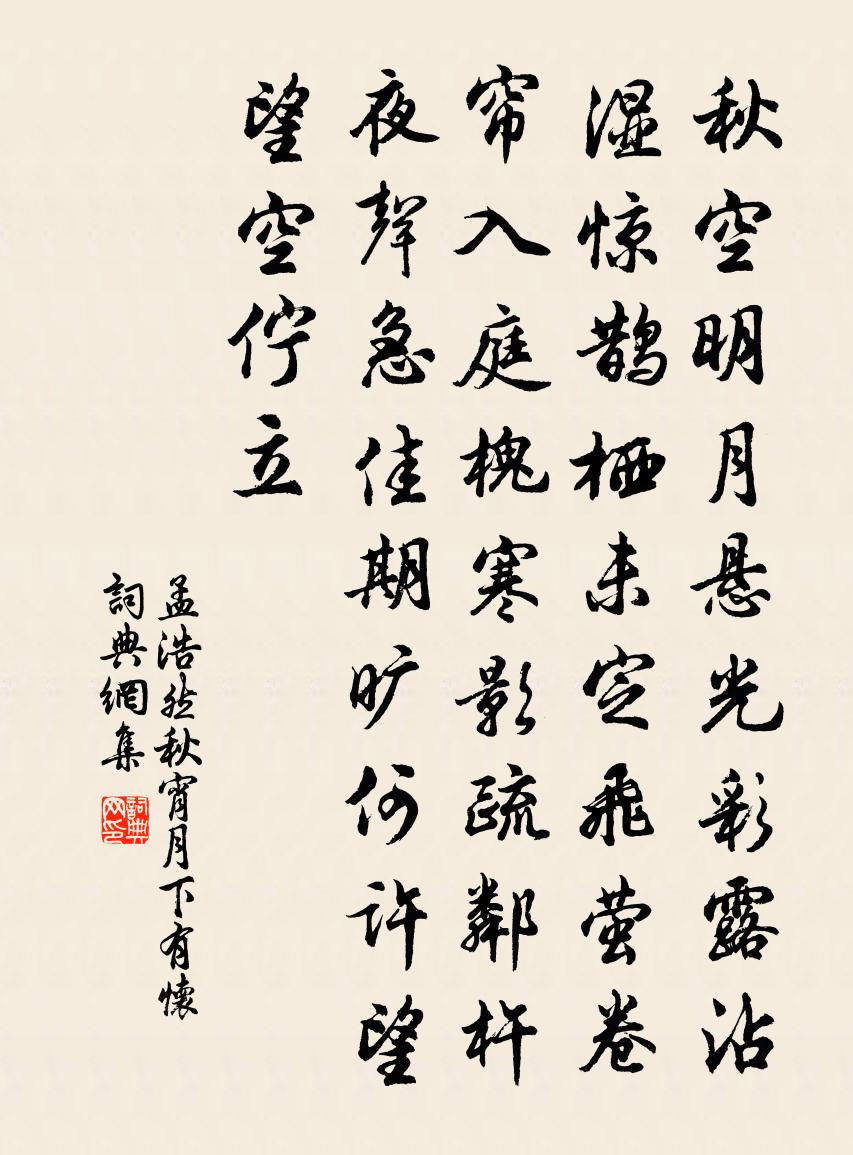 秋空明月悬光彩露沾
湿惊鹊栖未定飞萤卷
帘入庭槐寒影疏鄰杵
夜聲急佳期旷何许望
望空佇立
孟浩然秋宵月下有懷
詞典網集
詞典网印